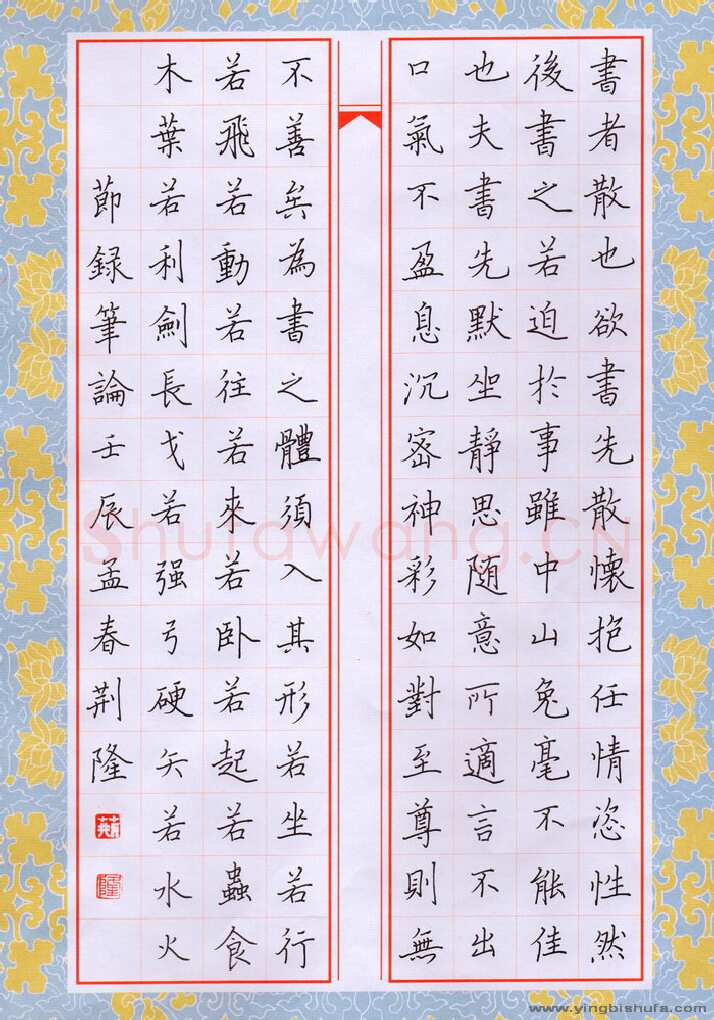 書者散也欲書先散懷抱任情恣性然
後書之若迫於事雖中山兔毫不能佳
也夫書先默坐靜思隨意所適言不出
口氣不盈息沉密神彩如對至尊則無
不善矣為書之體須入其形若坐若行
若飛若動若往若來若臥若起若蟲食
木葉若利劍長戈若强弓硬矢若水火
節録筆論壬辰孟春荆隆
荊
隆
Shufawang.CN
www.yingbishufa.com